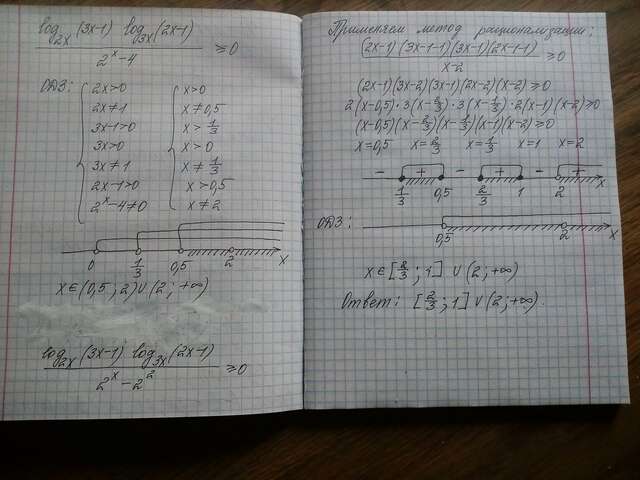 log₂ₓ(3x-1) log₃ₓ(2x-1)
2ˣ-4 ≥0
ОДЗ: { 2x>0 { x>0
2x≠1 x≠0,5
3x-1>0 x>1/3
3x>0 x>0
3x≠1 x≠1/3
2x-1>0 x>0,5
2ˣ-4≠0 x≠2
0 1/3 0,5 2 x
x∈(0,5;2)∪(2;+∞)
log₂ₓ(3x-1) log₃ₓ(2x-1)
2ˣ-2² ≥0
Применяем метод рационализации:
(2x-1)(3x-1-1)(3x-1)(2x-1-1)
x-2 ≥0
(2x-1)(3x-2)(3x-1)(2x-2)(x-2)≥0
2(x-0,5)·3(x-2/3)·3(x-1/3)·2(x-1)(x-2)≥0
(x-0,5)(x-2/3)(x-1/3)(x-1)(x-2)≥0
x=0,5 x=2/3 x=1/3 x=1 x=2
- + - + - +
1/3 0,5 2/3 1 2 x
ОДЗ: 0,5 2 x
x∈[2/3;1]∪(2;+∞)
Ответ: [2/3;1]∪(2;+∞).